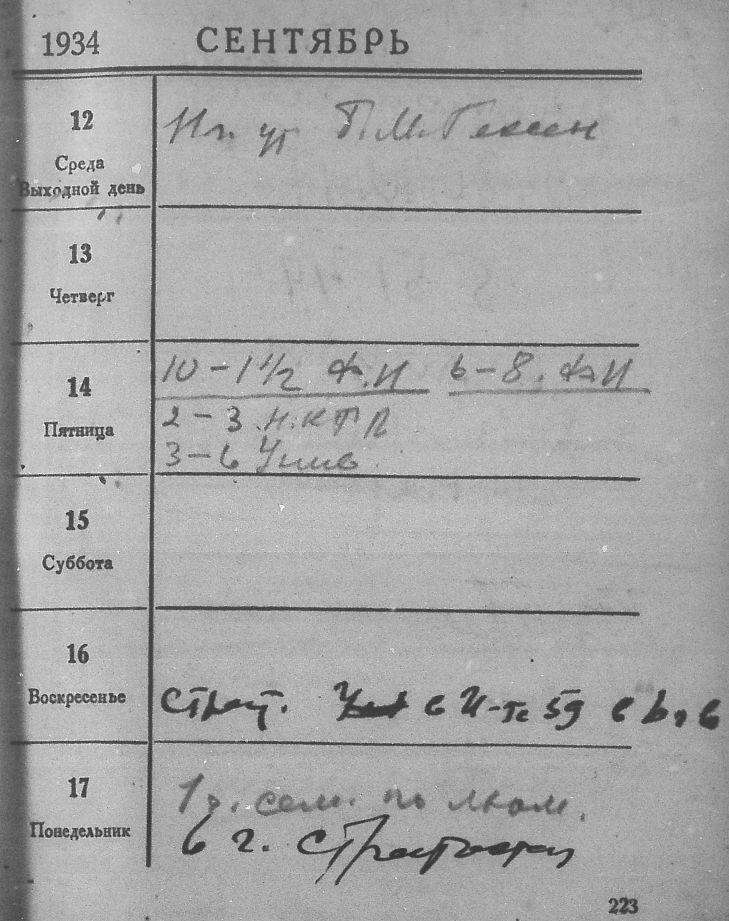 1934 СЕНТЯБРЬ
12
Среда
Выходной день
П.М. Гессен
13
Четверг
14
Пятница
10 – 1 1/2 Ф.И 6 – 8. ФИ
2 – 3 Н.К.Т.П
3 – 6 Унив
15
Суббота
16
Воскресенье
Страт. в 6
17
Понедельник
сем. по люм.
6 г.
223